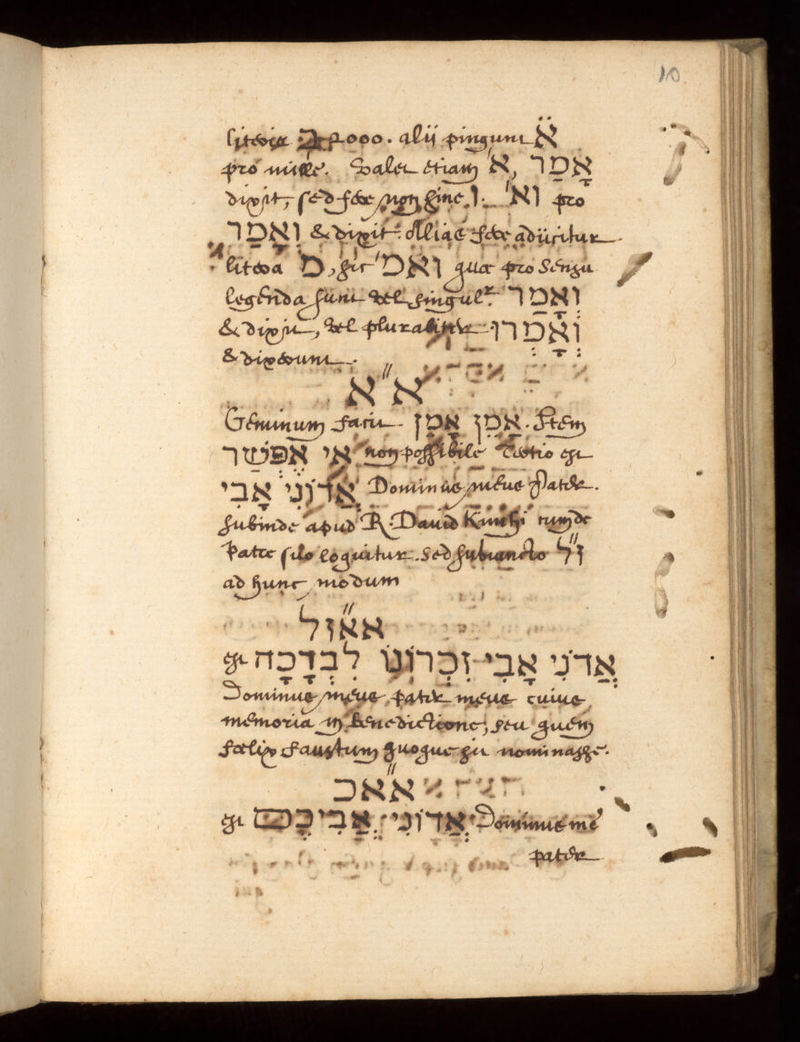 10.
litera 2000. alij pingunt א̈
pro mille. Valet etiam א', אָמַר
dixit, sed fere non sine ו. וא' pro
וְאָמַר & dixit. Alias fere adijcitur
litera מ, sic ואמ' quae pro sensu
legenda sunt vel singulr. וְאָמַר
& dixit, vel pluraliter וְאָמְרוּ
& dixerunt.
א״א
Geminum facit אָמֵן אָמֵן. Item
אִי אֶפְשַׁר non possibile est
אֲדוֹנִי אָבִי Dominus meus Pater.
subinde apud R. David Kimhi cum de
Patre suo loquitur. Sed subiuncto ז״ל
ad hunc modum
אא״זל
אֲדֹנִי אָבִי זִכְרוֹנוֹ לִבְרָכָה est
Dominus meus pater meus cuius
memoria in benedictione, seu quem
foelix faustum quoque sit nominasse.
א״אכ
est אֲדוֹנִי אֲבִיכֶם Dominus me
pater